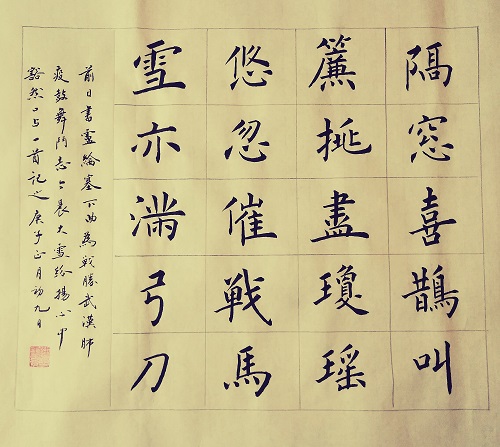 隔窓喜鵲叫
簾挑盡瓊瑶
悠忽催戰馬
雪亦滿弓刀
前日書盧綸塞下曲為戰勝武漢肺
疫鼓舞鬥志今晨大雪紛揚心中
豁然口占一首記之庚子正月初九日